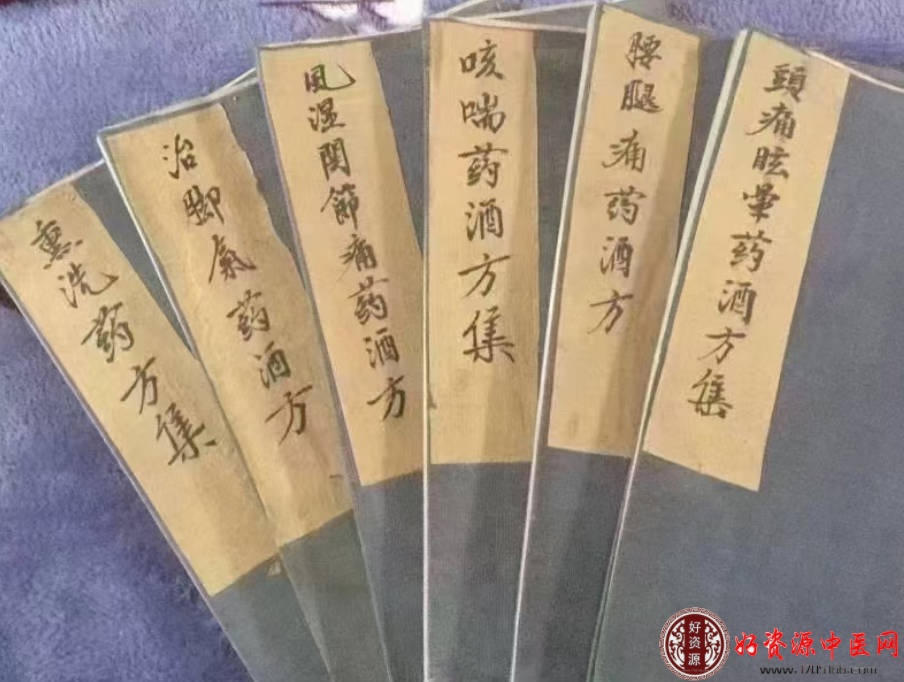 熏洗药方集
治脚氣药酒方
风湿関節痛药酒方
咳喘药酒方集
腰腿痛药酒方
頭痛眩暈药酒方集
好资源
好资源中医网